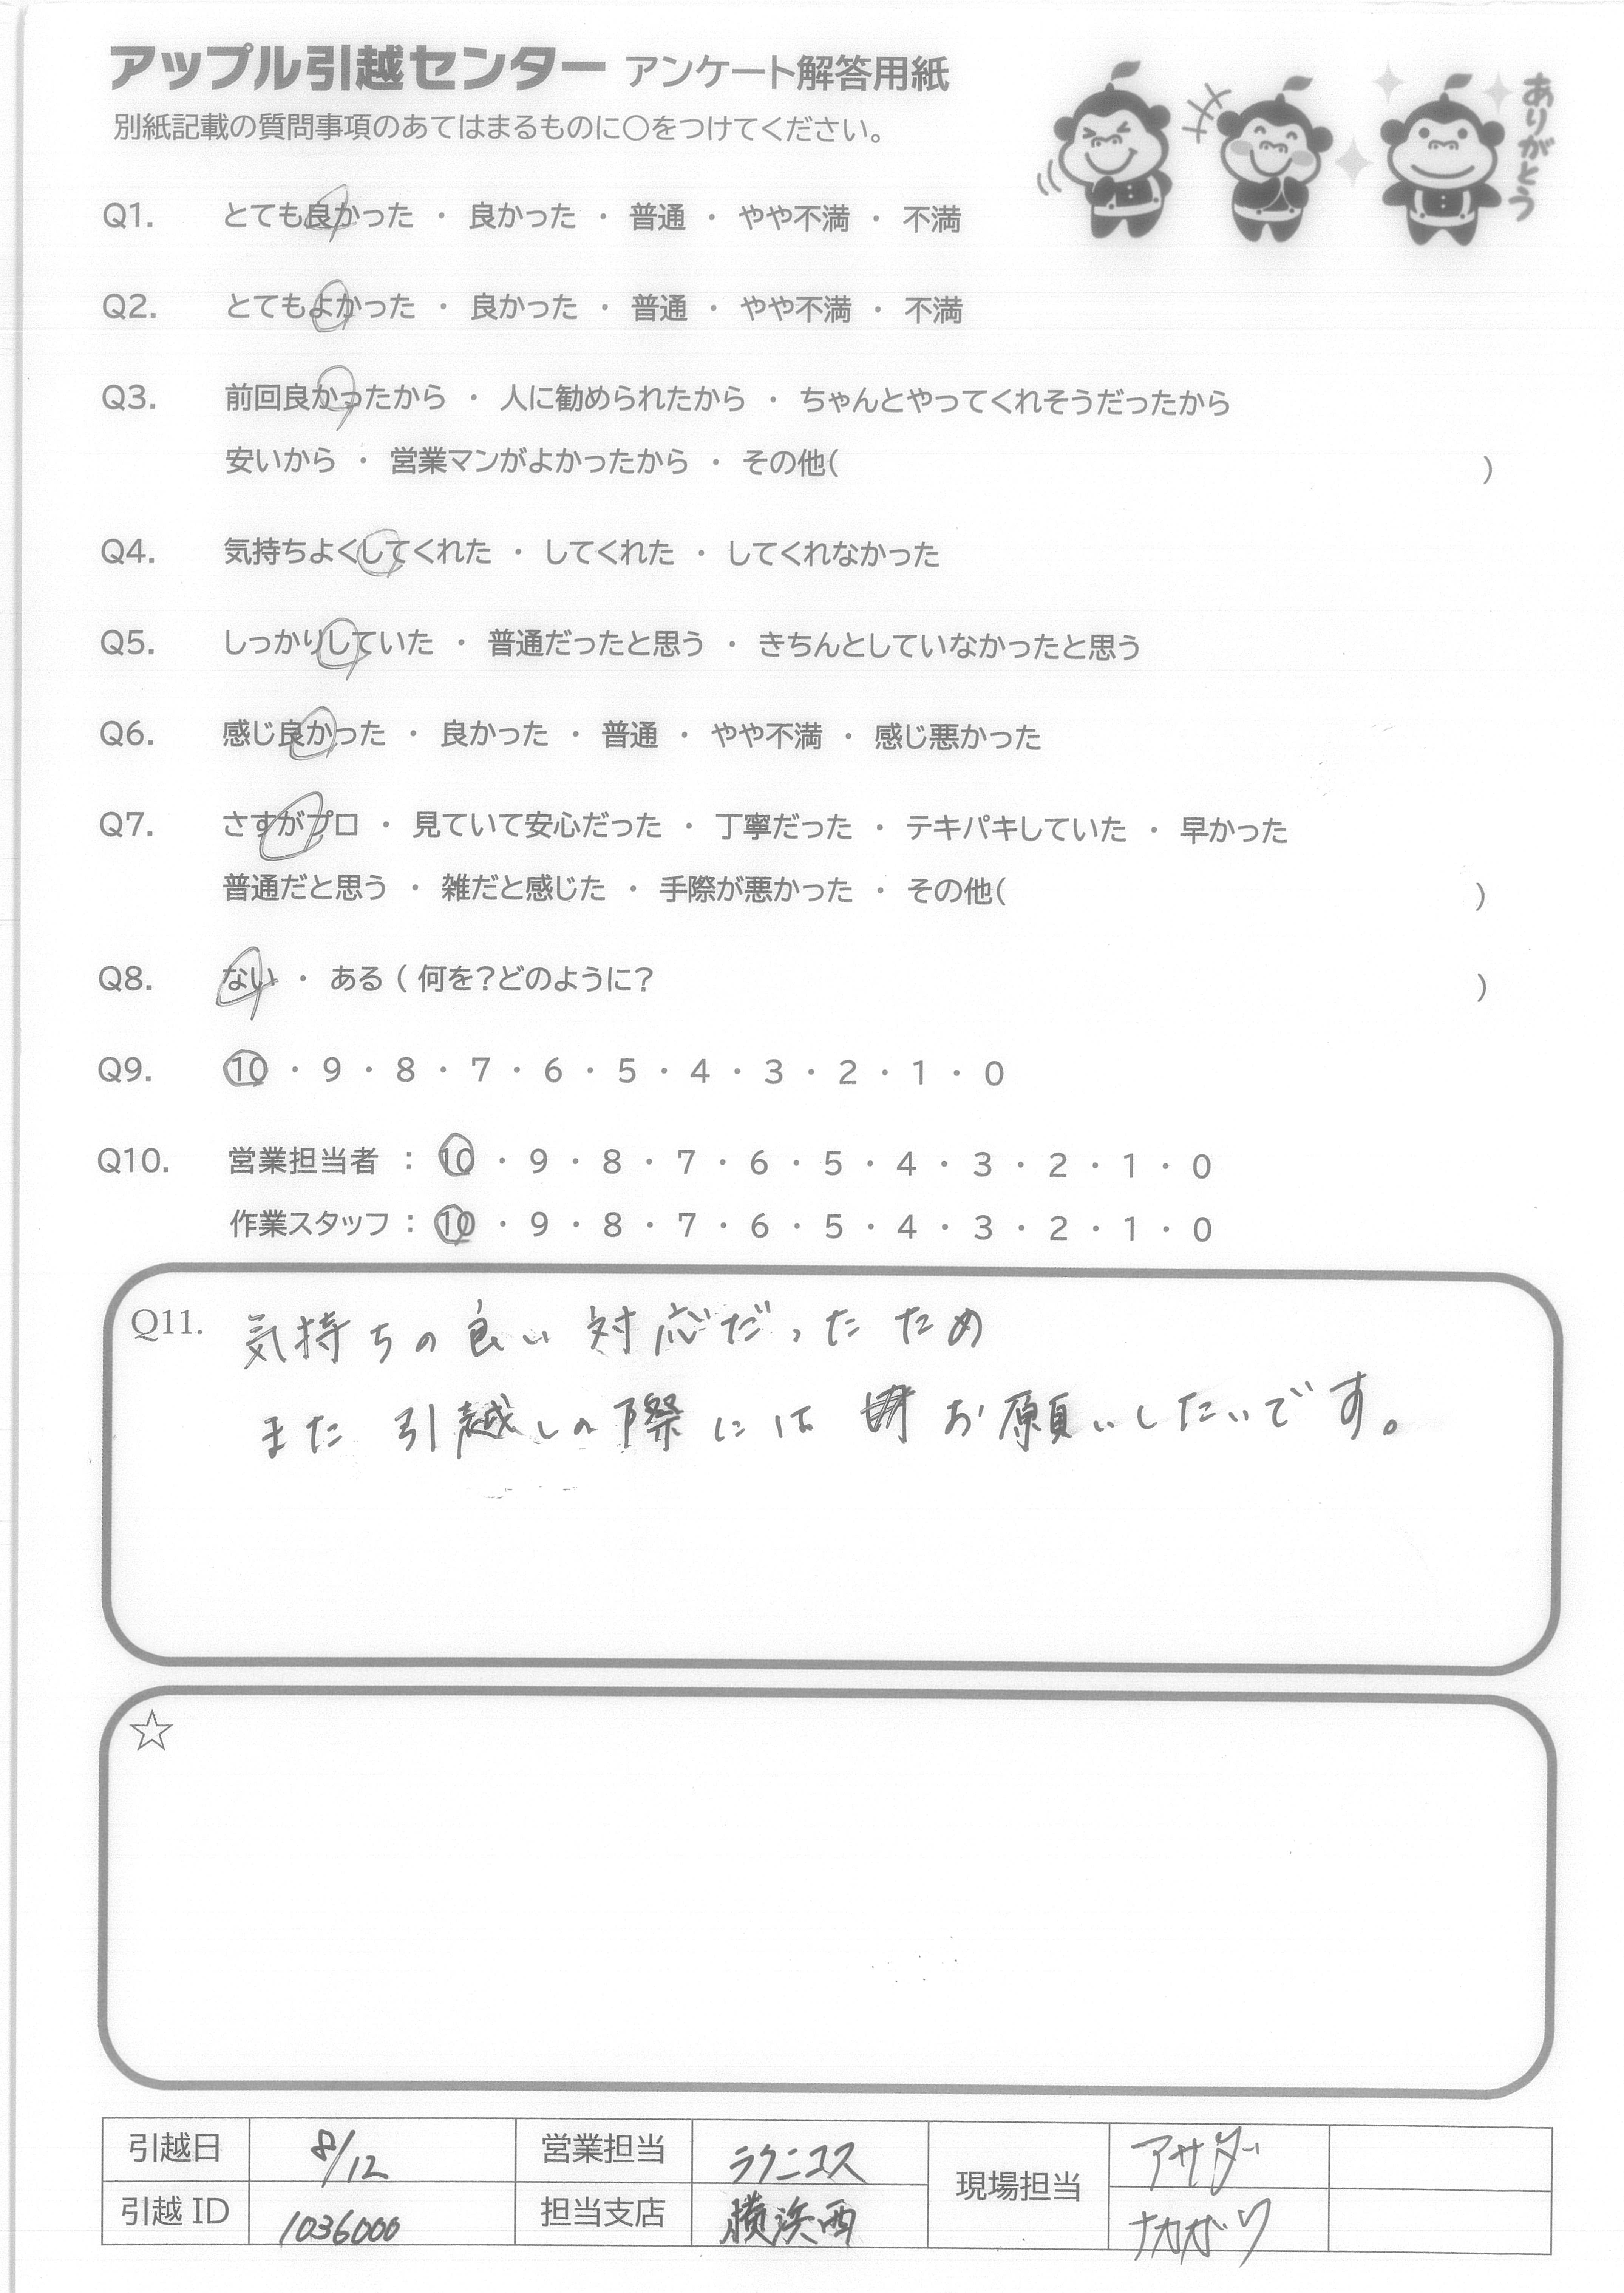 アップル引越センター アンケート解答用紙
別紙記載の質問事項のあてはまるものに○をつけてください。
ありがとう
Q1. とても良かった ・ 良かった ・ 普通 ・ やや不満 ・ 不満
Q2. とてもよかった ・ 良かった ・ 普通 ・ やや不満 ・ 不満
Q3. 前回良かったから ・ 人に勧められたから ・ ちゃんとやってくれそうだったから
安いから ・ 営業マンがよかったから ・ その他( )
Q4. 気持ちよくしてくれた ・ してくれた ・ してくれなかった
Q5. しっかりしていた ・ 普通だったと思う ・ きちんとしていなかったと思う
Q6. 感じ良かった ・ 良かった ・ 普通 ・ やや不満 ・ 感じ悪かった
Q7. さすがプロ ・ 見ていて安心だった ・ 丁寧だった ・ テキパキしていた ・ 早かった
普通だと思う ・ 雑だと感じた ・ 手際が悪かった ・ その他( )
Q8. ない ・ ある ( 何を?どのように? )
Q9. 10 ・ 9 ・ 8 ・ 7 ・ 6 ・ 5 ・ 4 ・ 3 ・ 2 ・ 1 ・ 0
Q10. 営業担当者 : 10 ・ 9 ・ 8 ・ 7 ・ 6 ・ 5 ・ 4 ・ 3 ・ 2 ・ 1 ・ 0
作業スタッフ : 10 ・ 9 ・ 8 ・ 7 ・ 6 ・ 5 ・ 4 ・ 3 ・ 2 ・ 1 ・ 0
Q11. 気持ちの良い対応だったため
また引越しの際には お願いしたいです。
☆
引越日 8/12 営業担当 ラクニコス 現場担当 アサダ
引越ID 1036000 担当支店 横浜西 ナカガワ